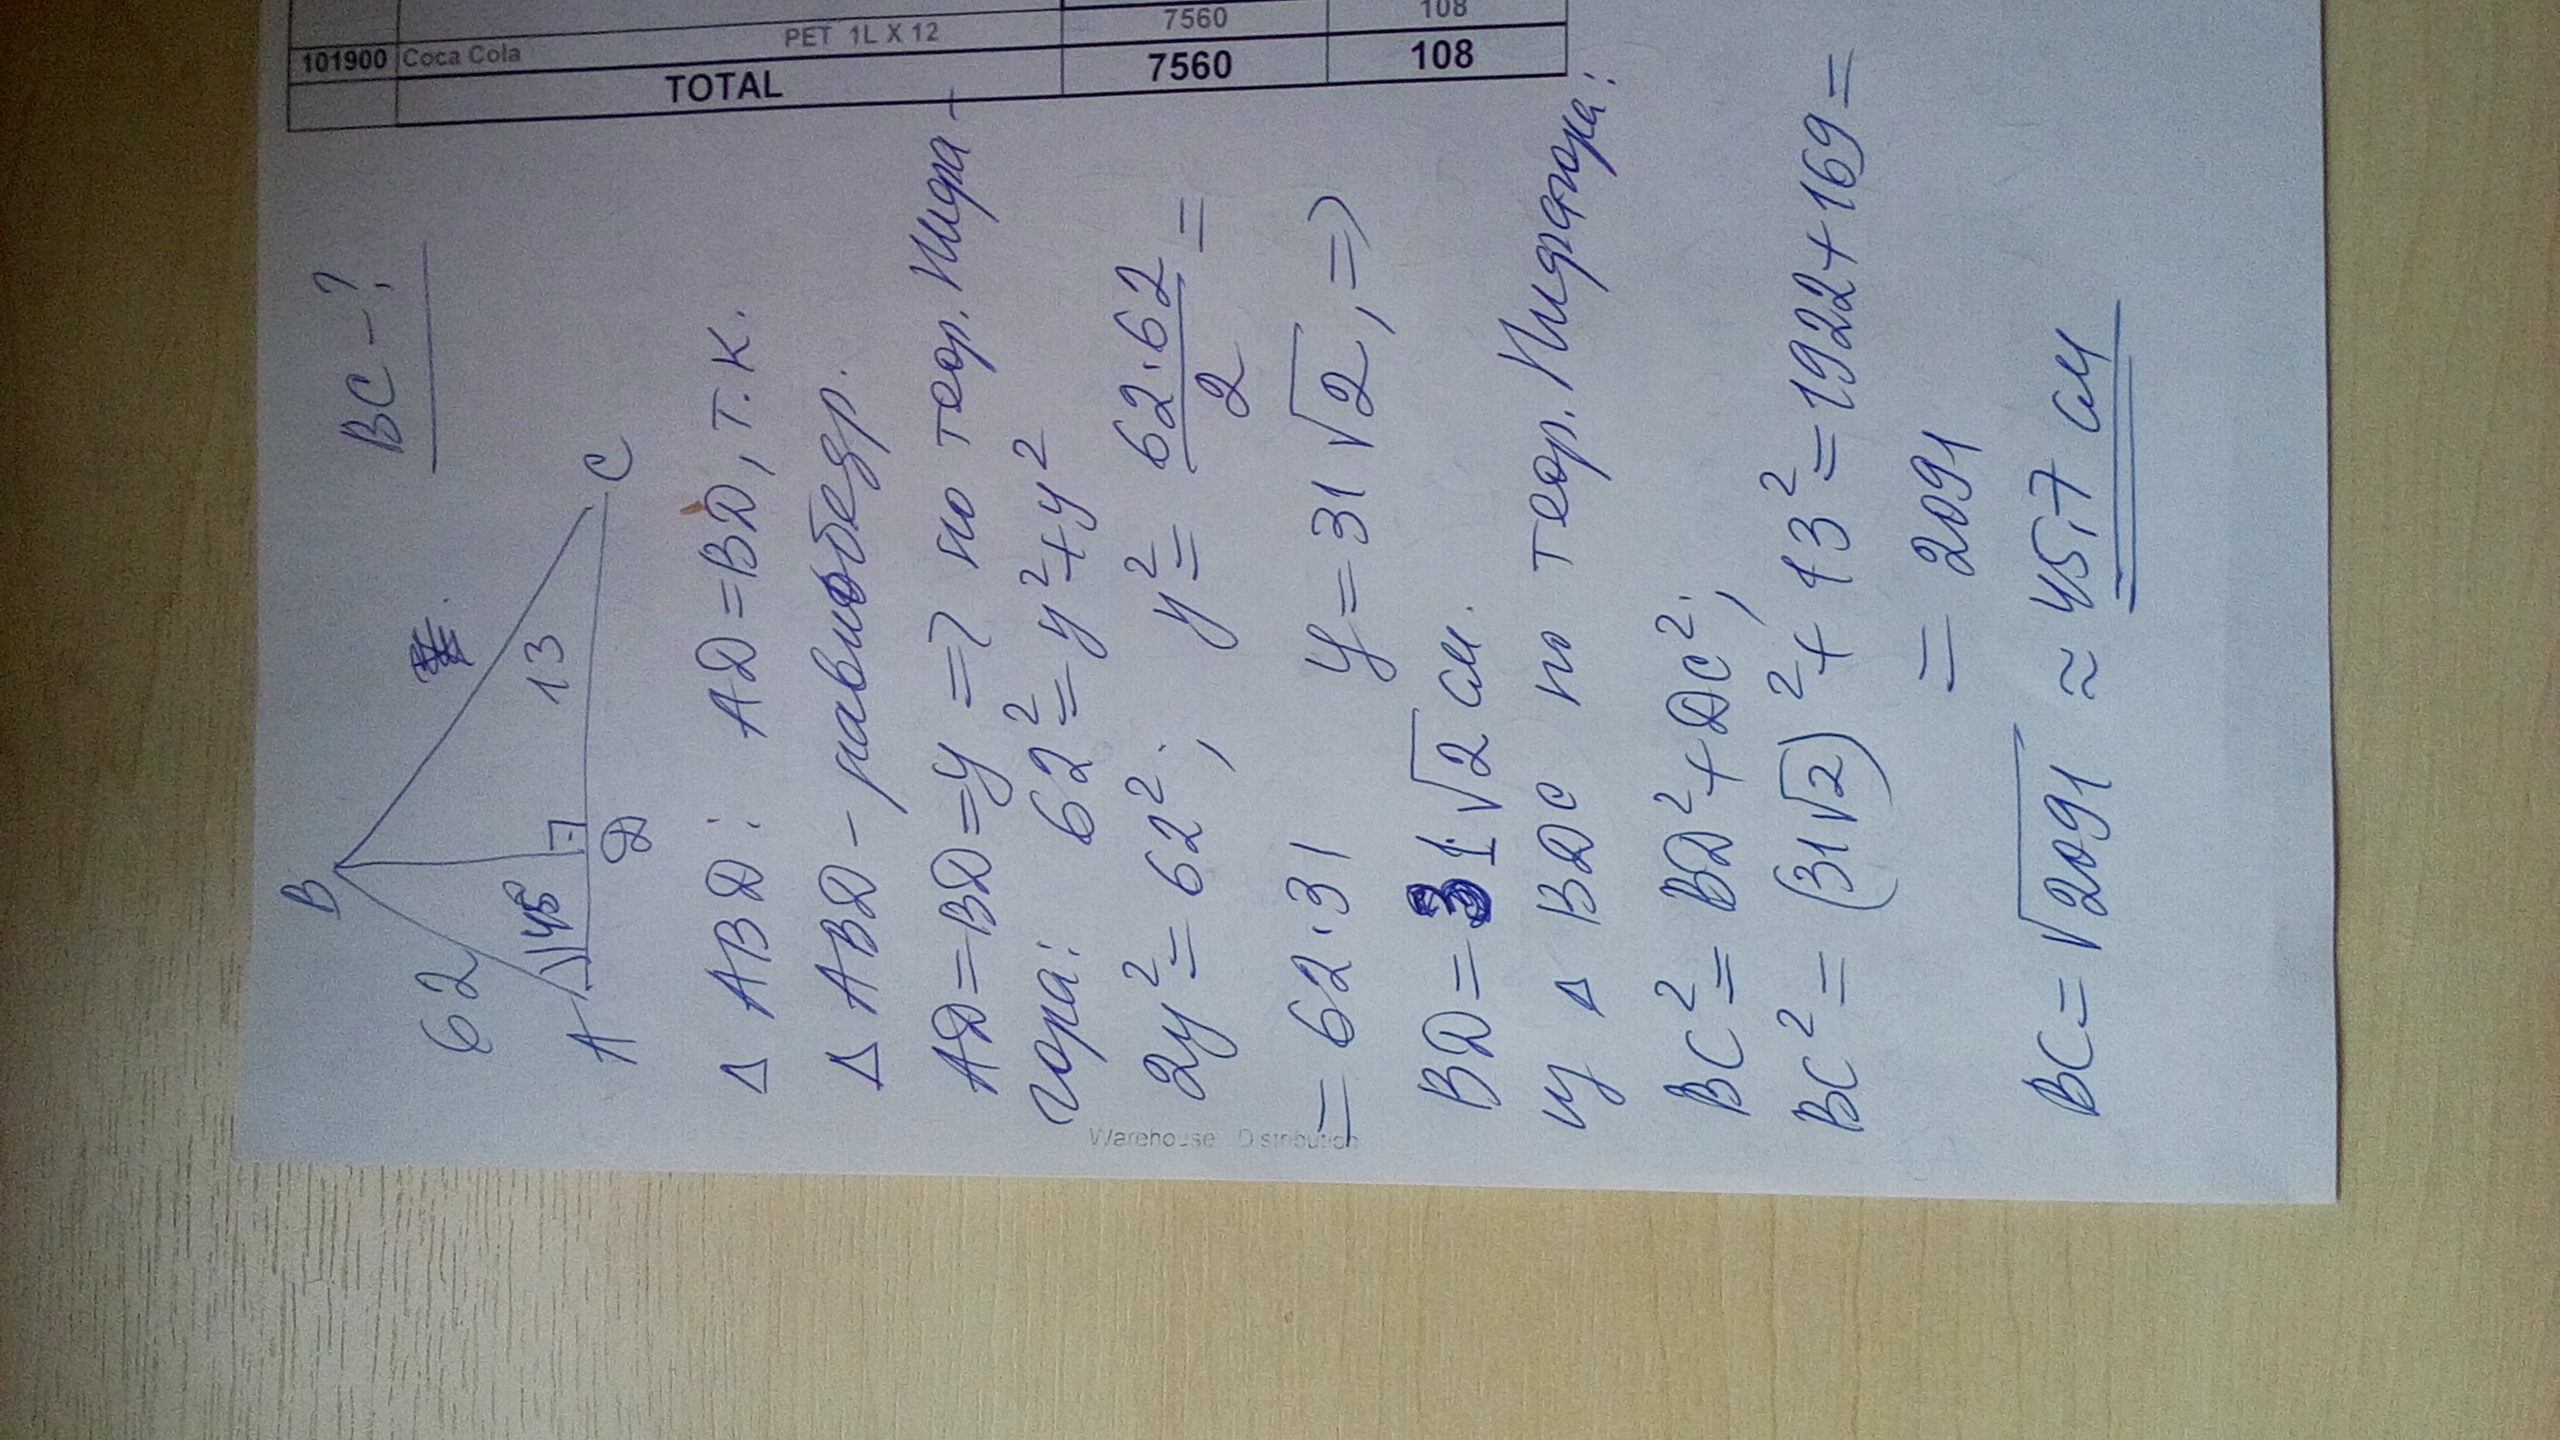 7560 108
101900 Coca Cola PET 1L X 12
TOTAL 7560 108
BC - ?
B
62
13
45°
A
D
C
Δ ABD: AD = BD, т.к.
Δ ABD - равнобедр.
AD = BD = y = ? по теор. Пифа-
гора: 62² = y² + y²
2y² = 62²; y² = 62·62/2 =
= 62·31 y = 31√2, =>
BD = 31√2 см.
из Δ BDC по теор. Пифагора:
BC² = BD² + DC²;
BC² = (31√2)² + 13² = 1922 + 169 =
= 2091
BC = √2091 ≈ 45,7 см
Warehouse Distribution